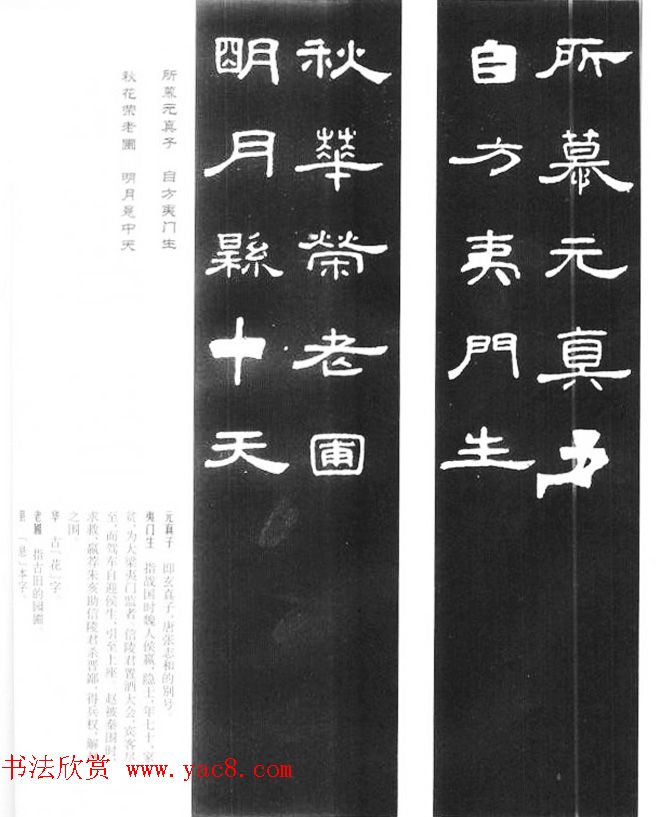 所慕元真子
自方夷門生
秋華榮老圃
朙月縣中天
所慕元真子　自方夷门生
秋花荣老圃　明月悬中天
元真子　即玄真子,唐张志和的别号。
夷门生　指战国时魏人侯嬴,隐士,年七十,家
贫,为大梁夷门监者。信陵君置酒大会,宾客
至,而驾车自迎侯生,引至上座。赵被秦围时,
求救,嬴荐朱亥助信陵君杀晋鄙,得兵权,解
之围。
华　古「花」字。
老圃　指古旧的园圃。
县　「悬」本字。
书法欣赏 www.yac8.com